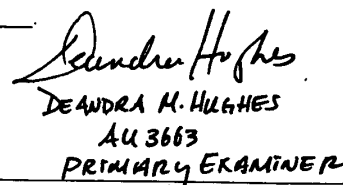 Deandra Hughes
DEANDRA M. HUGHES
AU 3663
PRIMARY EXAMINER